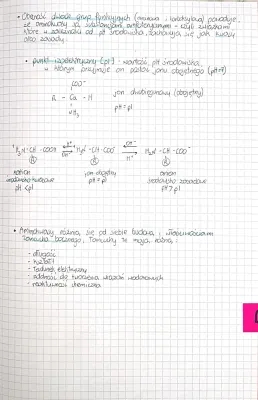 • Obecność dwóch grup funkcyjnych (aminowa i karboksylowa) powoduje,
że aminokwasy są substancjami amfoterycznymi - czyli związkami
które w zależności od pH środowiska, zachowują się jak kwasy
albo zasady.
• punkt izoelektryczny (pI) - wartość pH środowiska,
w którym przyjmuje on postać jonu obojętnego (pH=7)
COO⁻
R - Cα - H
NH₃
jon dwubiegunowy (obojętny)
pH = pI
H₃N⁺-CH-COOH ⇄ H₃N⁺-CH-COO⁻ ⇄ H₂N-CH-COO⁻
H⁺ OH⁻
OH⁻ H⁺
R R R
kation jon obojętny anion
środowisko kwasowe pH = pI środowisko zasadowe
pH < pI pH > pI
• Aminokwasy różnią się od siebie budową i
łańcucha bocznego, łańcuchy te mają różną:
- długość
- kształt
- ładunek elektryczny
- zdolność do tworzenia wiązań wodorowych
- reaktywność chemiczna